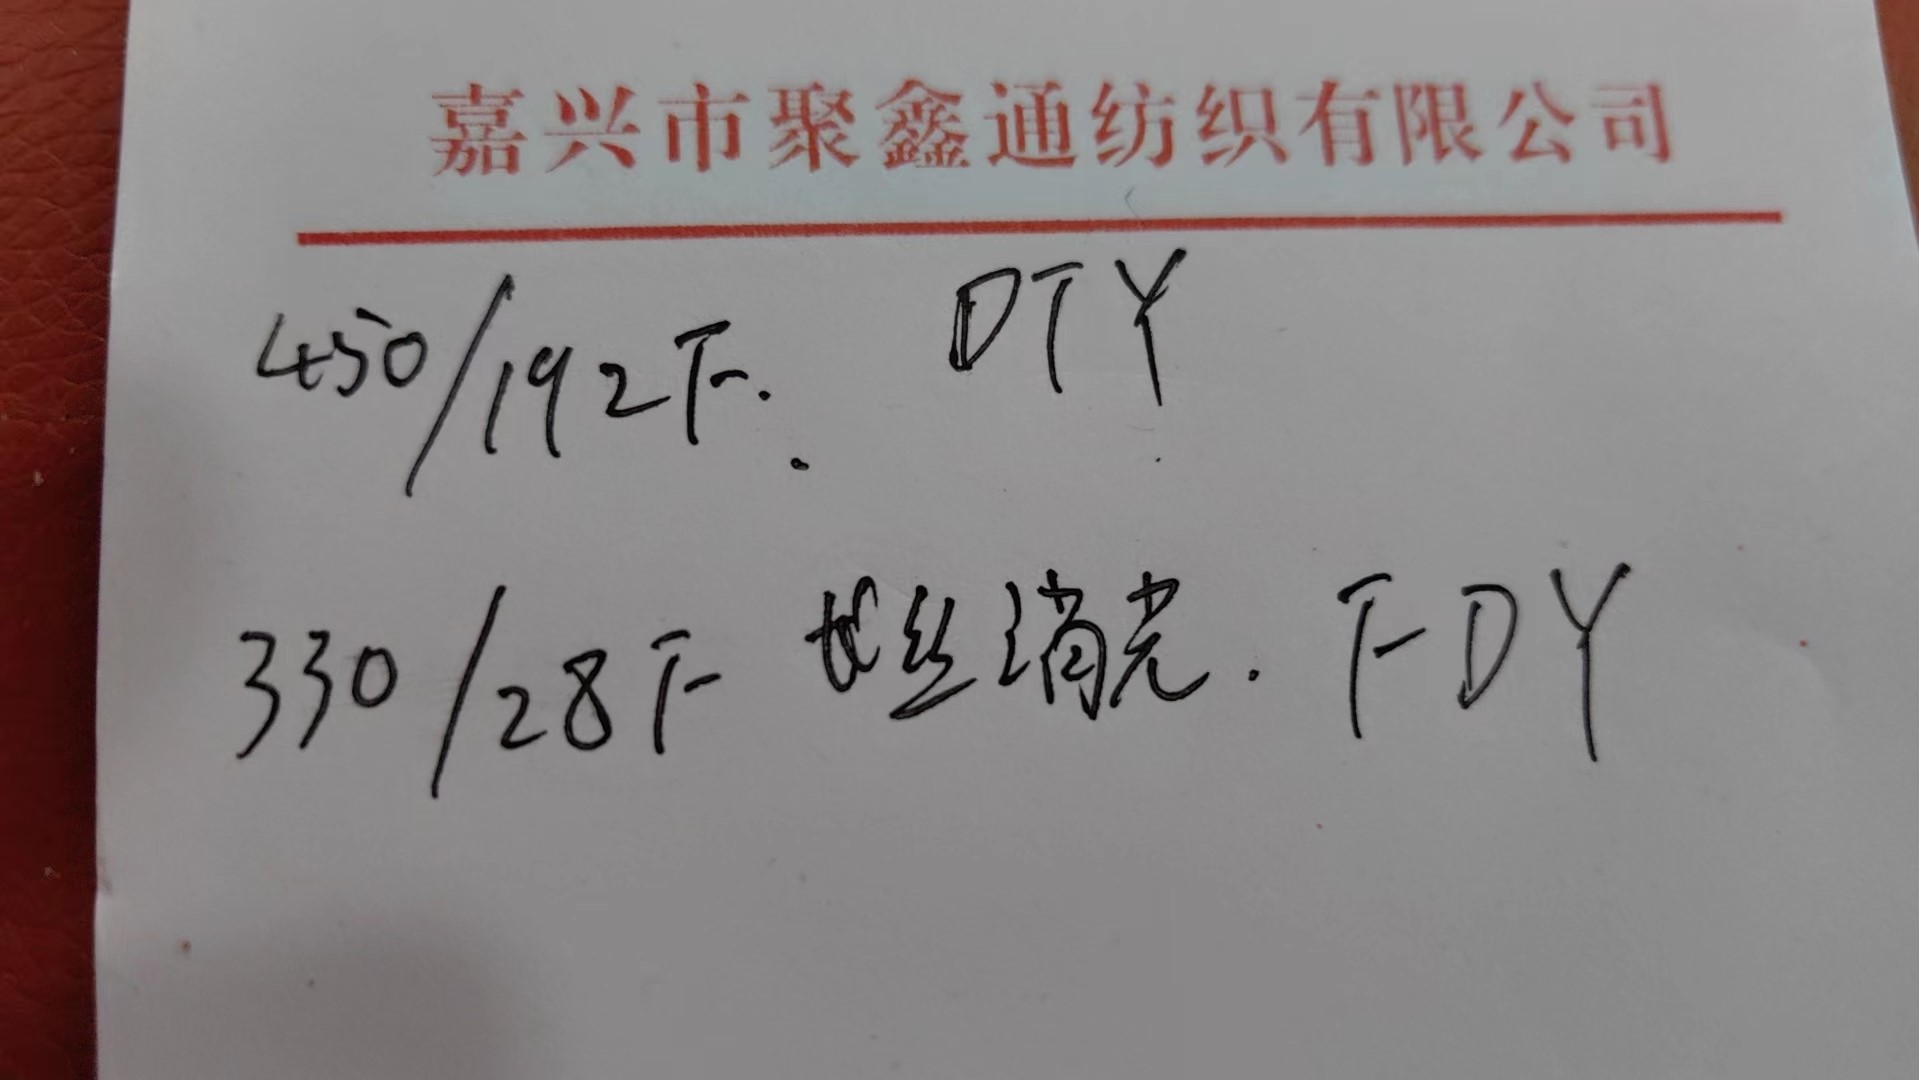 嘉兴市聚鑫通纺织有限公司
450/192F. DTY
330/28F 长丝消光. FDY